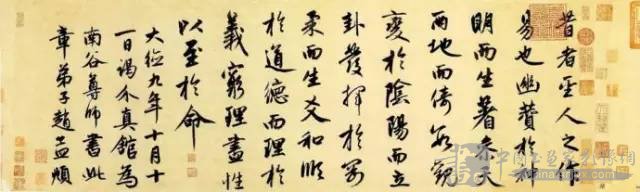 昔者聖人之作
易也幽贊於神
明而生蓍參天
两地而倚數觀
變於陰陽而立
卦發揮於剛
柔而生爻和順
於道德而理於
義窮理盡性
以至於命
大德九年十月十
一日謁介真館為
南谷尊師書此
章弟子趙孟頫